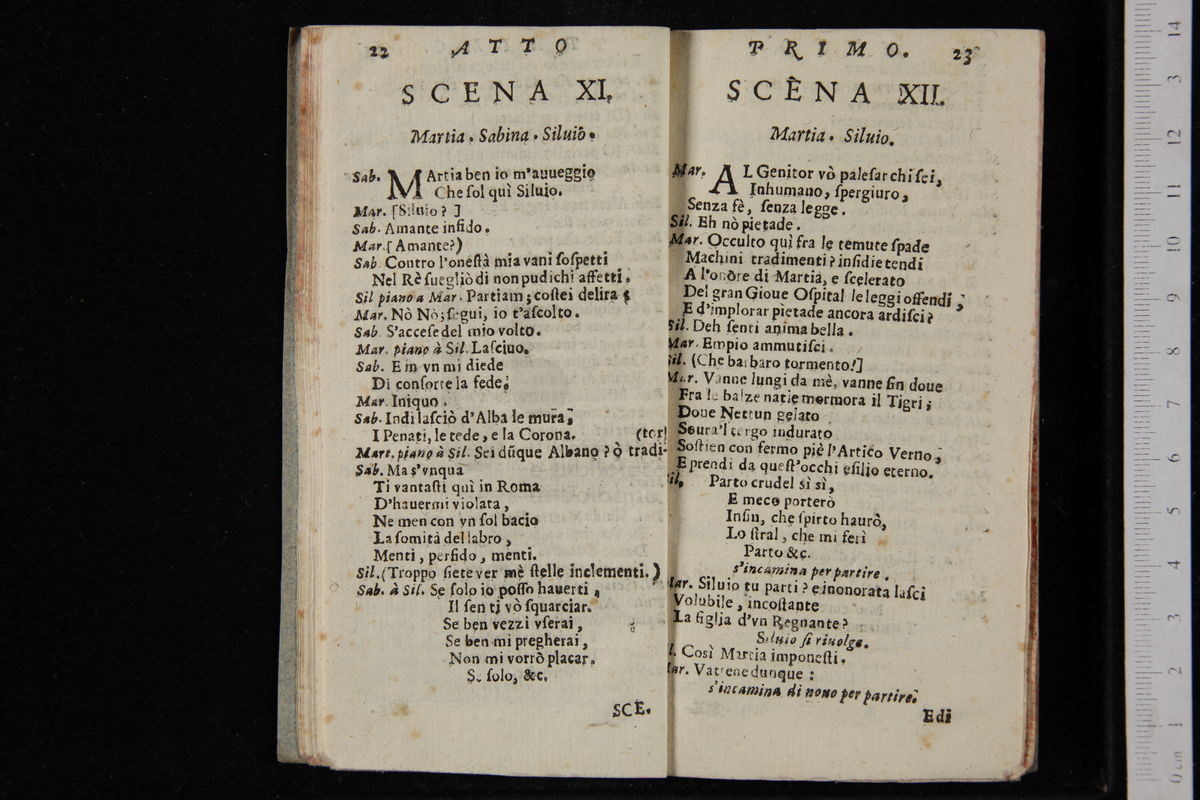 22 ATTO
SCENA XI.
Martia. Sabina. Siluio.
Sab. MArtia ben io m'auueggio
Che sol quì Siluio.
Mar. [Siluio? ]
Sab. Amante infido.
Mar. [Amante?)
Sab. Contro l'onestà mia vani sospetti
Nel Rè suegliò di non pudichi affetti.
Sil piano a Mar. Partiam; costei delira
Mar. Nò Nò; segui, io t'ascolto.
Sab. S'accese del mio volto.
Mar. piano à Sil. Lasciuo.
Sab. E in vn mi diede
Di consorte la fede;
Mar. Iniquo.
Sab. Indi lasciò d'Alba le mura;
I Penati, le tede, e la Corona. (tor!
Mart. piano à Sil. Sei dũque Albano? ò tradi-
Sab. Ma s'vnqua
Ti vantasti quì in Roma
D'hauermi violata,
Ne men con vn sol bacio
La somità del labro,
Menti, perfido, menti.
Sil. (Troppo siete ver mè stelle inclementi.)
Sab. à Sil. Se solo io posso hauerti,
Il sen ti vò squarciar.
Se ben vezzi vserai,
Se ben mi pregherai,
Non mi vorrò placar.
Se solo, &c.
SCE.
PRIMO. 23
SCENA XII.
Martia. Siluio.
Mar. AL Genitor vò palesar chi sei,
Inhumano, spergiuro,
Senza fè, senza legge.
Sil. Eh nò pietade.
Mar. Occulto quì fra le temute spade
Machini tradimenti? insidie tendi
A l'onore di Martia, e scelerato
Del gran Gioue Ospital le leggi offendi;
E d'implorar pietate ancora ardisci?
Sil. Deh senti anima bella.
Mar. Empio ammutisci.
Sil. (Che barbaro tormento!]
Mar. Vanne lungi da mè, vanne sin doue
Fra le balze natie mormora il Tigri;
Doue Nettun gelato
Soura'l tergo indurato
Sostien con fermo piè l'Artico Verno,
E prendi da quest'occhi esilio eterno.
Sil. Parto crudel sì sì,
E meco porterò
Insin, che spirto haurò,
Lo stral, che mi ferì
Parto &c.
s'incamina per partire.
Mar. Siluio tu parti? e inonorata lasci
Volubile, incostante
La figlia d'vn Regnante?
Siluio si riuolge.
Sil. Così Martia imponesti.
Mar. Vattene dunque:
s'incamina di nouo per partire.
Edi
14
3
13
12
11
10
9
8
7
6
5
4
3
2
1
0 cm